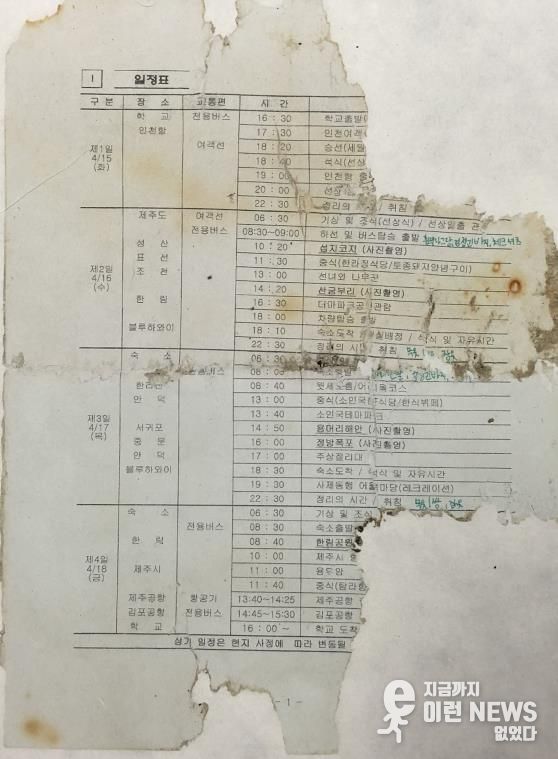 I 일정표
구 분 장 소 교통편 시 간
제1일 4/15 (화)
학 교 전용버스 16 : 30 학교출발(
인천항 17 : 30 인천여객
여객선 18 : 20 승선(세월
18 : 40 석식(선상
19 : 00 인천항 출
20 : 00 선상
22 : 30 정리의 / 취침
제2일 4/16 (수)
제주도 여객선 06 : 30 기상 및 조식(선상식) / 선상일출 관
전용버스 08:30~09:00 하선 및 버스탑승 출발
성 산 10 : 20 섭지코지 (사진촬영)
표 선 11 : 30 중식(한라정식당/토종돼지양념구이)
조 천 13 : 00 선녀와 나무꾼
14 : 20 산굼부리 (사진촬영)
한 림 16 : 30 더마파크공연관람
18 : 00 차량탑승 출발
블루하와이 18 : 10 숙소도착 / 실배정 / 석식 및 자유시간
22 : 30 정리의 시간 / 취침
제3일 4/17 (목)
숙 소 06 : 30
08 : 00 숙소출발
한라산 08 : 40 윗세오름/어리목코스
안 덕 13 : 00 중식(소인국 식당/한식뷔페)
13 : 40 소인국테마파크
서귀포 14 : 50 용머리해안 (사진촬영)
중 문 16 : 00 정방폭포 (사진촬영)
안 덕 17 : 00 주상절리대
블루하와이 18 : 30 숙소도착 / 석식 및 자유시간
19 : 30 사제동행 어울 마당(레크레이션)
22 : 30 정리의 시간 / 취침
제4일 4/18 (금)
숙 소 06 : 30 기상 및 조식
전용버스 08 : 30 숙소출발
한 림 08 : 40 한림공원
10 : 00 제주시
제주시 11 : 00 용두암
11 : 40 중식(탐라
제주공항 항공기 13:40~14:25 제주공항
김포공항 전용버스 14:45~15:30 김포공항
학 교 16 : 00 ~ 학교 도착
상기 일정은 현지 사정에 따라 변동될
- 1 -
지금까지
이런 NEWS
없었다